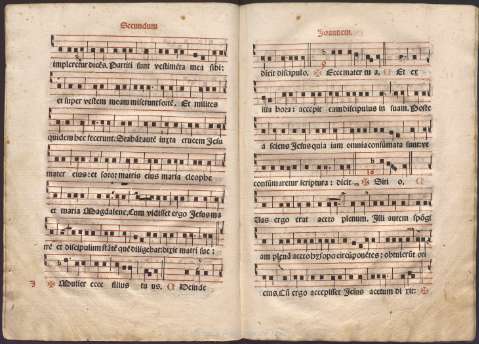 Secundum
impleretur dicēs. Partiti sunt vestimēta mea sibi:
et super vestem meam miserunt sortē. Et milites
quidem hec fecerunt. Stabāt autē iuxta crucem Jesu
mater eius: et soror matris eius maria cleophe
et maria Magdalene. Cum vidisset ergo Jesus ma
trē et discipulum stātē quē diligebat: dixit matri sue:
Mulier ecce filius tu us. Deinde
Joannem.
dicit discipulo. Ecce mater tu a. Et ex
illa hora: accepit eam discipulus in suam. Poste
a sciens Jesus quia iam omnia cōsūmata sunt: vt
consūmaretur scriptura: dicit. Siti o,
Vas ergo erat aceto plenum. Illi autem spōgi
am plenā aceto hysopo circūponētes: obtulerūt ori
eius. Cū ergo accepisset Jesus acetum di xit: